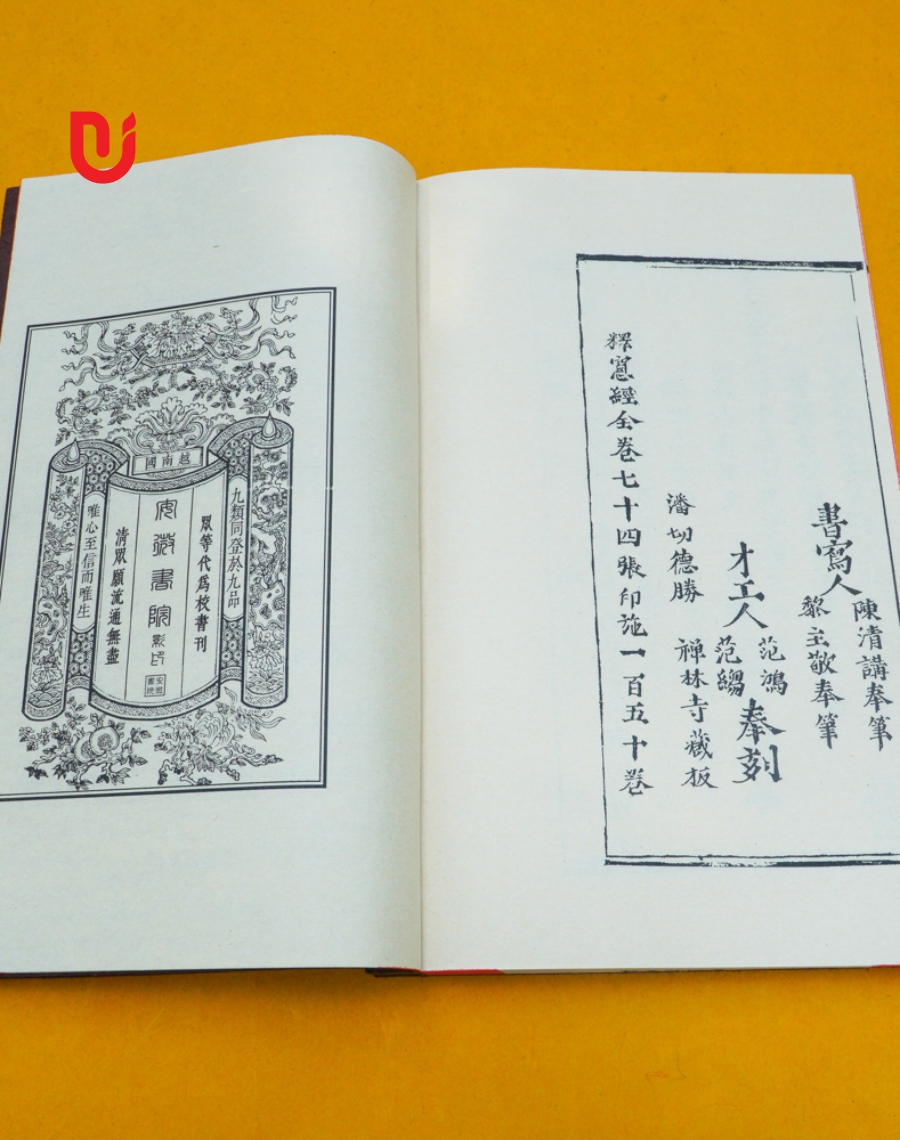 書寫人
陳清講奉筆
黎敬奉筆
才工人
范鴻
范
奉刻
潘切德勝
禅林寺藏板
釋寃經全卷七十四張印施一百五十卷
越南國
九類同登於九品
眾等代爲枚書刊
書院
影印
清眾願流通無盡
唯心至信而唯生